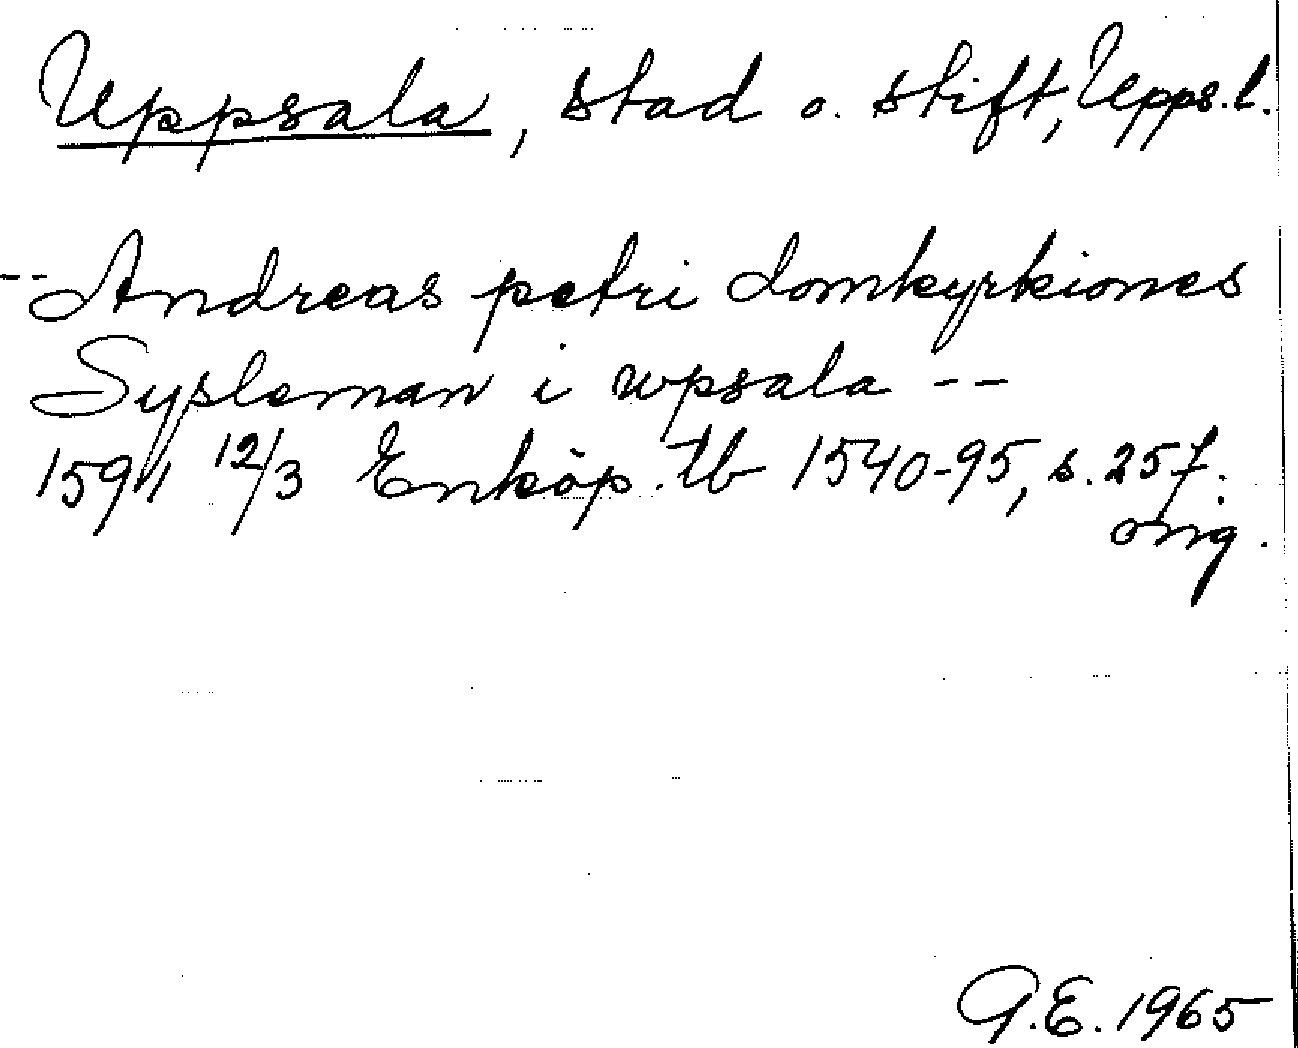 Uppsala, stad o. stift, Upps. l.
-- Andreas petri domkyrkiones
Sysleman i wpsala --
1591 12/3 Enköp. tb 1540-95, s. 257.
orig.
G.E. 1965